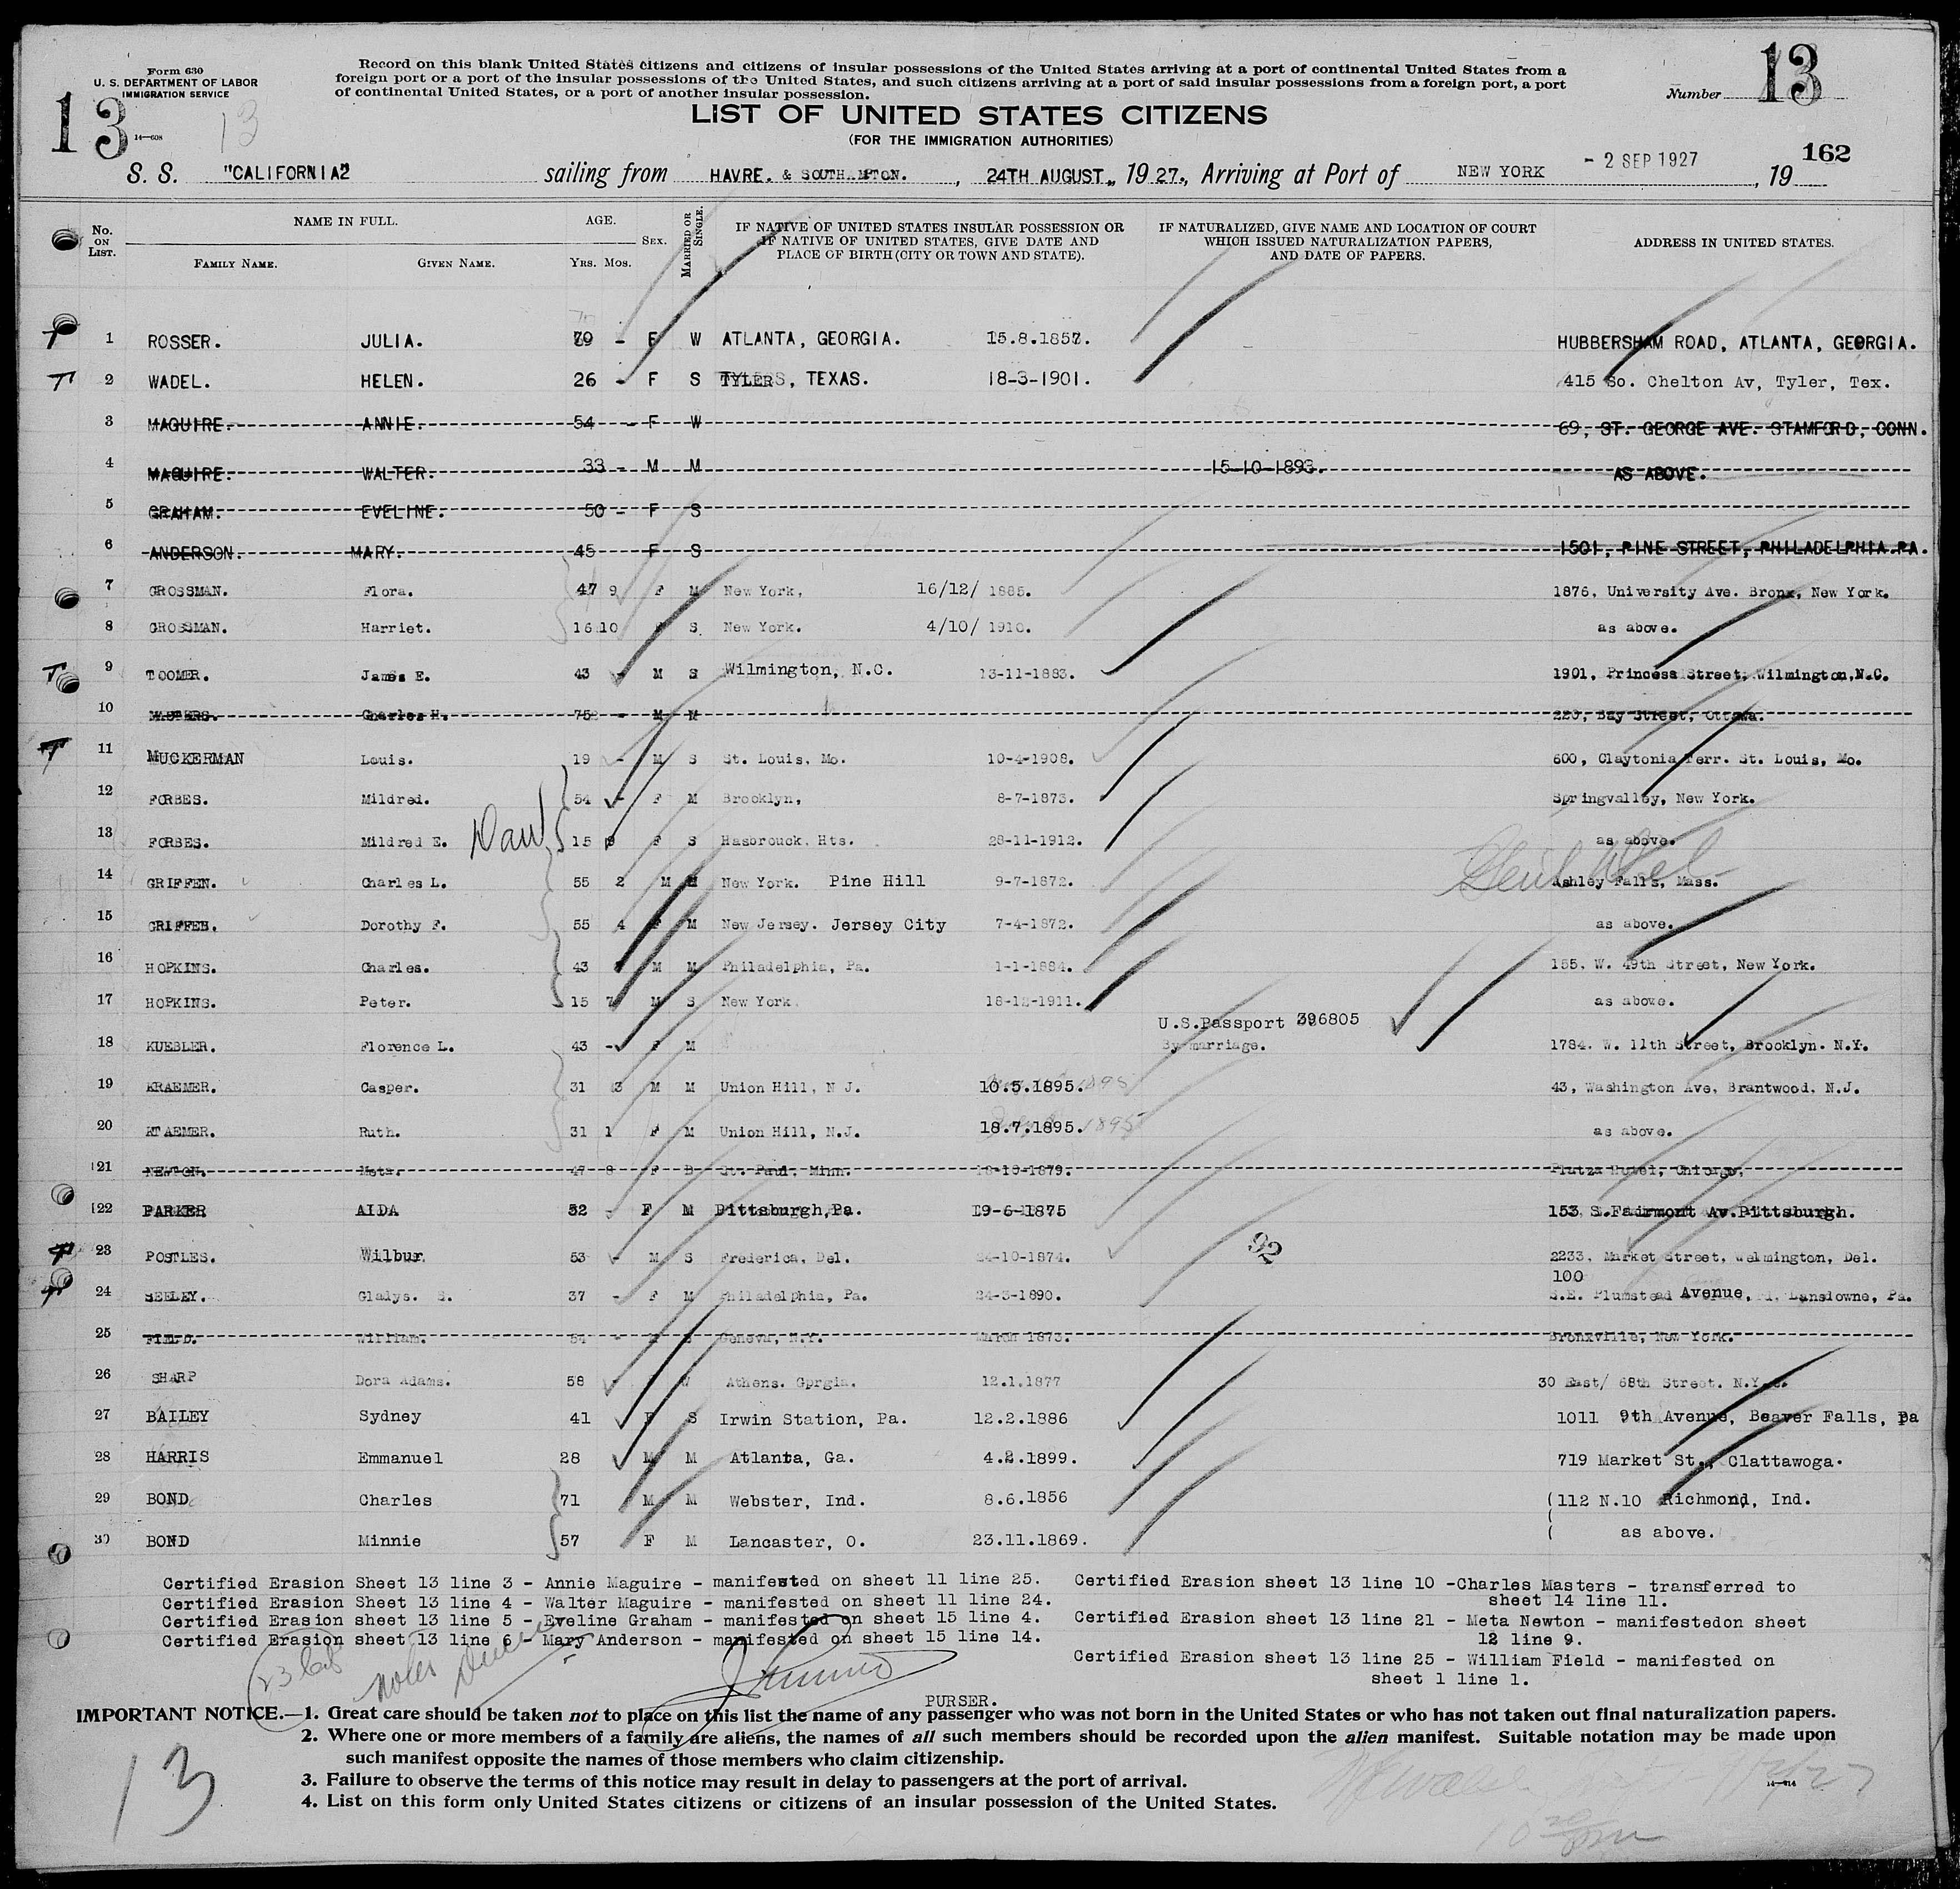 Form 630
U. S. DEPARTMENT OF LABOR
IMMIGRATION SERVICE
14—608
13
13
Record on this blank United States citizens and citizens of insular possessions of the United States arriving at a port of continental United States from a
foreign port or a port of the insular possessions of the United States, and such citizens arriving at a port of said insular possessions from a foreign port, a port
of continental United States, or a port of another insular possession.
Number 13
LIST OF UNITED STATES CITIZENS
(FOR THE IMMIGRATION AUTHORITIES)
162
S. S. "CALIFORNIA2 sailing from HAVRE. & SOUTHAMPTON. , 24TH AUGUST., 1927., Arriving at Port of NEW YORK - 2 SEP 1927 , 19
No. ON LIST. NAME IN FULL. AGE. SEX. MARRIED OR SINGLE. IF NATIVE OF UNITED STATES INSULAR POSSESSION OR IF NATIVE OF UNITED STATES, GIVE DATE AND PLACE OF BIRTH (CITY OR TOWN AND STATE). IF NATURALIZED, GIVE NAME AND LOCATION OF COURT WHICH ISSUED NATURALIZATION PAPERS, AND DATE OF PAPERS. ADDRESS IN UNITED STATES.
FAMILY NAME. GIVEN NAME. YRS. MOS.
1 ROSSER. JULIA. 70 - F W ATLANTA, GEORGIA. 15.8.1857. HUBBERSHAM ROAD, ATLANTA, GEORGIA.
2 WADEL. HELEN. 26 - F S TYLER, TEXAS. 18-3-1901. 415 So. Chelton Av, Tyler, Tex.
3 MAGUIRE. ANNIE. 54 - F W 69, ST. GEORGE AVE. STAMFORD, CONN.
4 MAGUIRE. WALTER. 33 - M M 15-10-1893. AS ABOVE.
5 GRAHAM. EVELINE. 50 - F S
6 ANDERSON. MARY. 45 F S 1501, PINE STREET, PHILADELPHIA.PA.
7 GROSSMAN. Flora. 47 9 F M New York, 16/12/ 1885. 1876, University Ave. Bronx, New York.
8 GROSSMAN. Harriet. 16 10 F S. New York. 4/10/ 1910. as above.
9 TOOMER. James E. 43 - M S Wilmington, N.C. 13-11-1883. 1901, Princess Street, Wilmington,N.C.
10 MASTERS. Charles H. 75 - M M 220, Bay Street, Ottawa.
11 MUCKERMAN Louis. 19 - M S St. Louis, Mo. 10-4-1908. 600, Claytonia Terr. St. Louis, Mo.
12 FORBES. Mildred. 54 - F M Brooklyn, 8-7-1873. Springvalley, New York.
13 FORBES. Mildred E. 15 9 F S Hasbrouck. Hts. 28-11-1912. as above.
14 GRIFFEN. Charles L. 55 2 M M New York. Pine Hill 9-7-1872. Ashley Falls, Mass.
15 GRIFFEN. Dorothy F. 55 4 F M New Jersey. Jersey City 7-4-1872. as above.
16 HOPKINS. Charles. 43 M M Philadelphia, Pa. 1-1-1884. 155. W. 49th Street, New York.
17 HOPKINS. Peter. 15 7 M S New York. 18-12-1911. as above.
U.S.Passport 396805
18 KUEBLER. Florence L. 43 - F M By marriage. 1784. W. 11th Street, Brooklyn. N.Y.
19 KRAEMER. Casper. 31 3 M M Union Hill, N J. 10.5.1895. 43, Washington Ave, Brantwood. N.J.
20 KRAEMER. Ruth. 31 1 F M Union Hill, N.J. 18.7.1895. as above.
21 NEWTON. Meta. 47 8 F D St. Paul, Minn. 18-10-1879. Hotel, Chicago,
22 PARKER AIDA 52 - F M Pittsburgh,Pa. 19-6-1875 153 S.Fairmont Av.Pittsburgh.
23 POSTLES. Wilbur. 53 - M S Frederica, Del. 24-10-1874. 2233, Market Street, Welmington, Del.
92
100
24 SEELEY. Gladys. S. 37 - F M Philadelphia, Pa. 24-3-1890. S.E. Plumstead Avenue, Lansdowne, Pa.
25 FIELD. William. 54 - Geneva, N.Y. March 1873. Bronxville, New York.
26 SHARP Dora Adams. 58 - W Athens. Gprgia. 12.1.1877 30 East/ 68th Street. N.Y.
27 BAILEY Sydney 41 F S Irwin Station, Pa. 12.2.1886 1011 9th Avenue, Beaver Falls, pa
28 HARRIS Emmanuel 28 M M Atlanta, Ga. 4.2.1899. 719 Market St., Clattawoga.
29 BOND Charles 71 M M Webster, Ind. 8.6.1856 (112 N.10 Richmond, Ind.
30 BOND Minnie 57 F M Lancaster, O. 23.11.1869. ( as above.
Certified Erasion Sheet 13 line 3 - Annie Maguire - manifested on sheet 11 line 25.
Certified Erasion Sheet 13 line 4 - Walter Maguire - manifested on sheet 11 line 24.
Certified Erasion sheet 13 line 5 - Eveline Graham - manifested on sheet 15 line 4.
Certified Erasion sheet 13 line 6 - Mary Anderson - manifested on sheet 15 line 14.
Certified Erasion sheet 13 line 10 -Charles Masters - transferred to
sheet 14 line 11.
Certified Erasion sheet 13 line 21 - Meta Newton - manifestedon sheet
12 line 9.
Certified Erasion sheet 13 line 25 - William Field - manifested on
sheet 1 line 1.
PURSER.
IMPORTANT NOTICE.—1. Great care should be taken not to place on this list the name of any passenger who was not born in the United States or who has not taken out final naturalization papers.
2. Where one or more members of a family are aliens, the names of all such members should be recorded upon the alien manifest. Suitable notation may be made upon
such manifest opposite the names of those members who claim citizenship.
3. Failure to observe the terms of this notice may result in delay to passengers at the port of arrival.
4. List on this form only United States citizens or citizens of an insular possession of the United States.
13